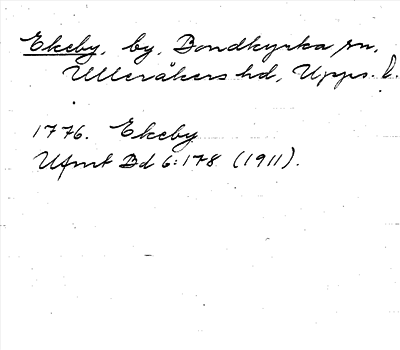 Ekeby, by, Bondkyrka sn,
Ulleråkers hd, Upps. l.
1776. Ekeby
Ufmt Bd 6:178 (1911).